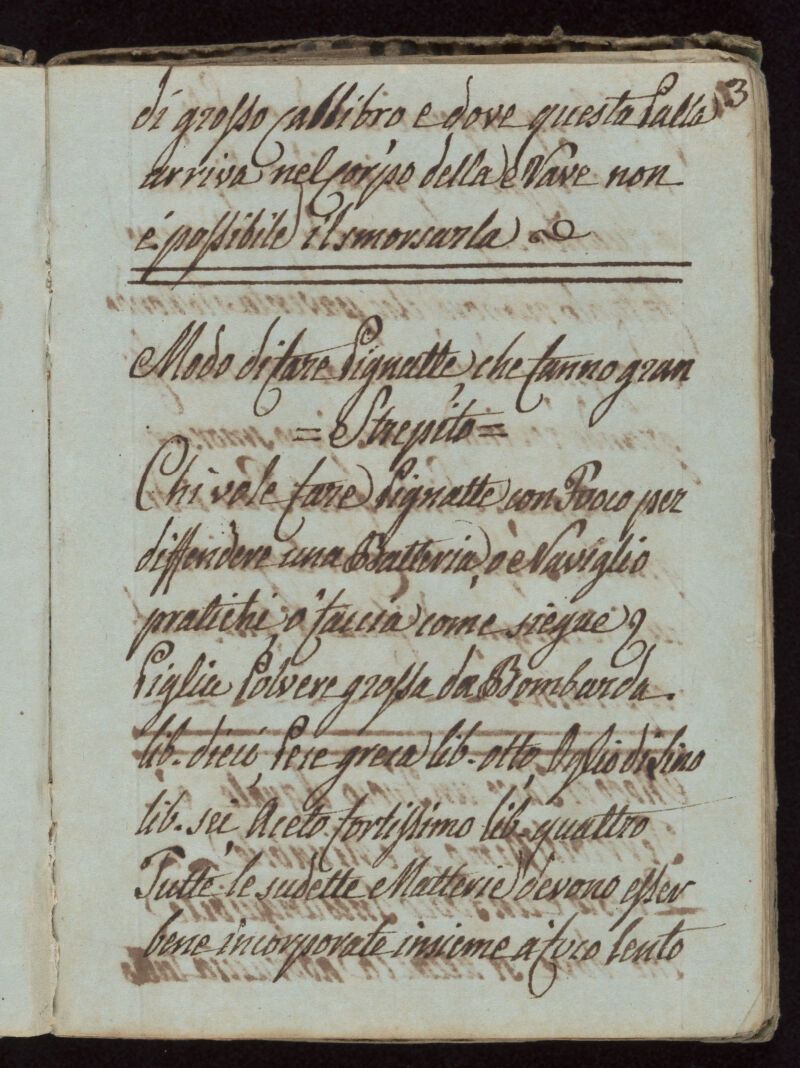 3
di grosso Callibro e dove questa Palla
arriva nel Corpo della Nave non
é possibile il smorsarla
Modo di fare Pignatte che fanno gran
= Strepito =
Chi vole fare Pignatte con Fooco per
diffendere una Batteria, o Naviglio
pratichi o' faccia come siegue
Piglia Polvere grossa da Bombarda.
lib. dieci, Pece greca lib. otto, Oglio di Lino
lib. sei, Aceto fortissimo lib. quattro
Tutte le sudette Matterie devono esser
bene incorporate insieme a' foco lento